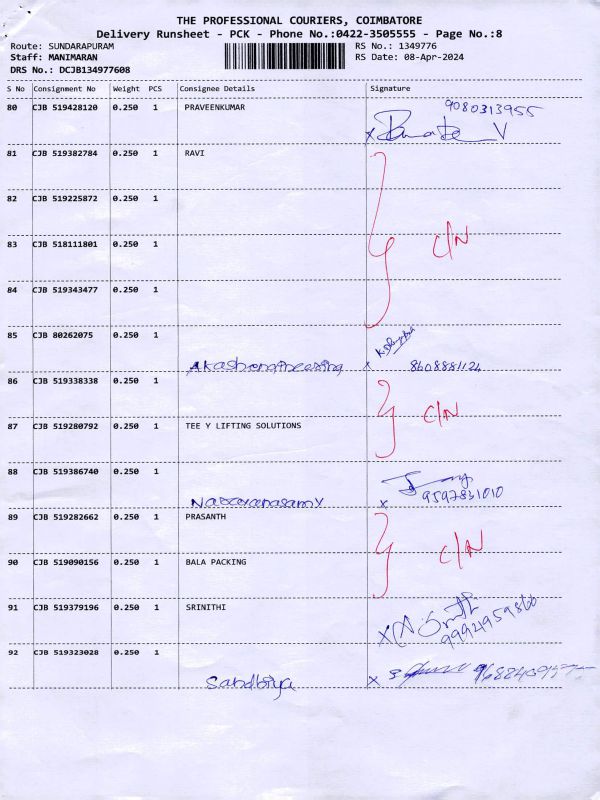 THE PROFESSIONAL COURIERS, COIMBATORE
Delivery Runsheet - PCK - Phone No.:0422-3505555 - Page No.:8
Route: SUNDARAPURAM RS No.: 1349776
Staff: MANIMARAN RS Date: 08-Apr-2024
DRS No.: DCJB134977608
S No Consignment No Weight PCS Consignee Details Signature
80 CJB 519428120 0.250 1 PRAVEENKUMAR 9080313955
x
81 CJB 519382784 0.250 1 RAVI
82 CJB 519225872 0.250 1
83 CJB 518111801 0.250 1 C/N
84 CJB 519343477 0.250 1
85 CJB 80262075 0.250 1
Akashengineering x 8608881124
86 CJB 519338338 0.250 1
C/N
87 CJB 519280792 0.250 1 TEE Y LIFTING SOLUTIONS
88 CJB 519386740 0.250 1
Narayanasamy x 9597831010
89 CJB 519282662 0.250 1 PRASANTH
C/N
90 CJB 519090156 0.250 1 BALA PACKING
91 CJB 519379196 0.250 1 SRINITHI
x
92 CJB 519323028 0.250 1
Sandhiya x